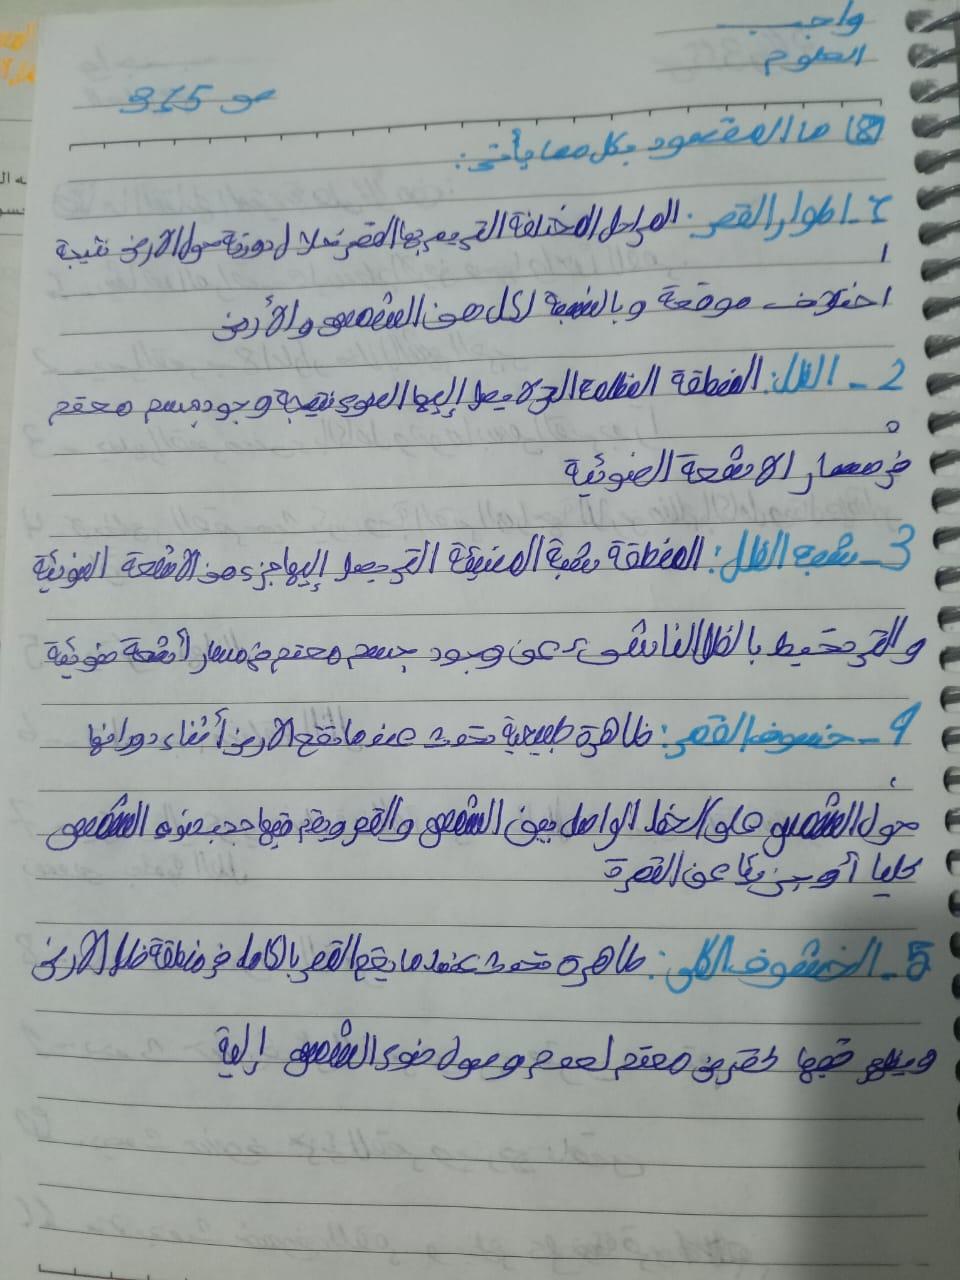 واجب
العلوم
ص 315
(8) ما المقصود بكل مما يأتي:
1- اطوار القمر: المراحل المختلفة التي يمر بها القمر خلال دورنة حول الارض نتيجة
اختلاف موقعة و بالنسبة لكل من الشمس والأرض
2- الظل: المنطقة المظلمة التي لا يصل إليها الضوء نتيجة وجود جسم معتم
في مسار الاشعة الضوئية
3- شبه الظل: المنطقة شبة المضيئة التي يصل إليها جزء من الاشعة الضوئية
والتي تحيط بالظل الناشىء عن وجود جسم معتم في مسار أشعة ضوئية
4- خسوف القمر: ظاهرة طبيعية تحدث عندما تقع الارض أثناء دورانها
حول الشمس على الخط الواصل بين الشمس والقمر ويتم فيها حجب ضوء الشمس
كليا أو جزئيا عن القمرة
5- الخسوف الكلي: ظاهرة تحدث عندما يقع القمر بالكامل في منطقة ظل الارض
ويظهر فيها القرص معتم لعدم وصول ضوء الشمس إلية